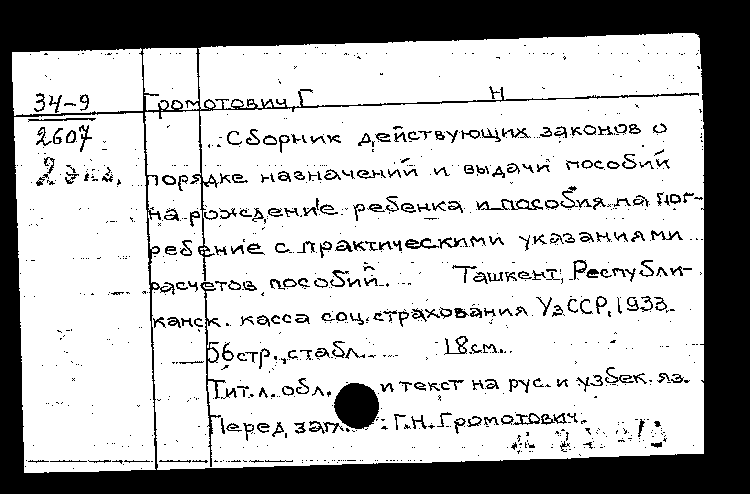 34-9 Громотович, Г Н
2607
2 экз.
...Сборник действующих законов о
порядке назначений и выдачи пособий
на рождение ребенка и пособия на пог-
ребение с практическими указаниями
расчетов пособий... Ташкент, Республи-
канск. касса соц. страхования УзССР, 1933.
56стр., стабл. 18см.
Тит. л. обл. и текст на рус. и узбек. яз.
Перед загл. : Г.Н. Громотович.